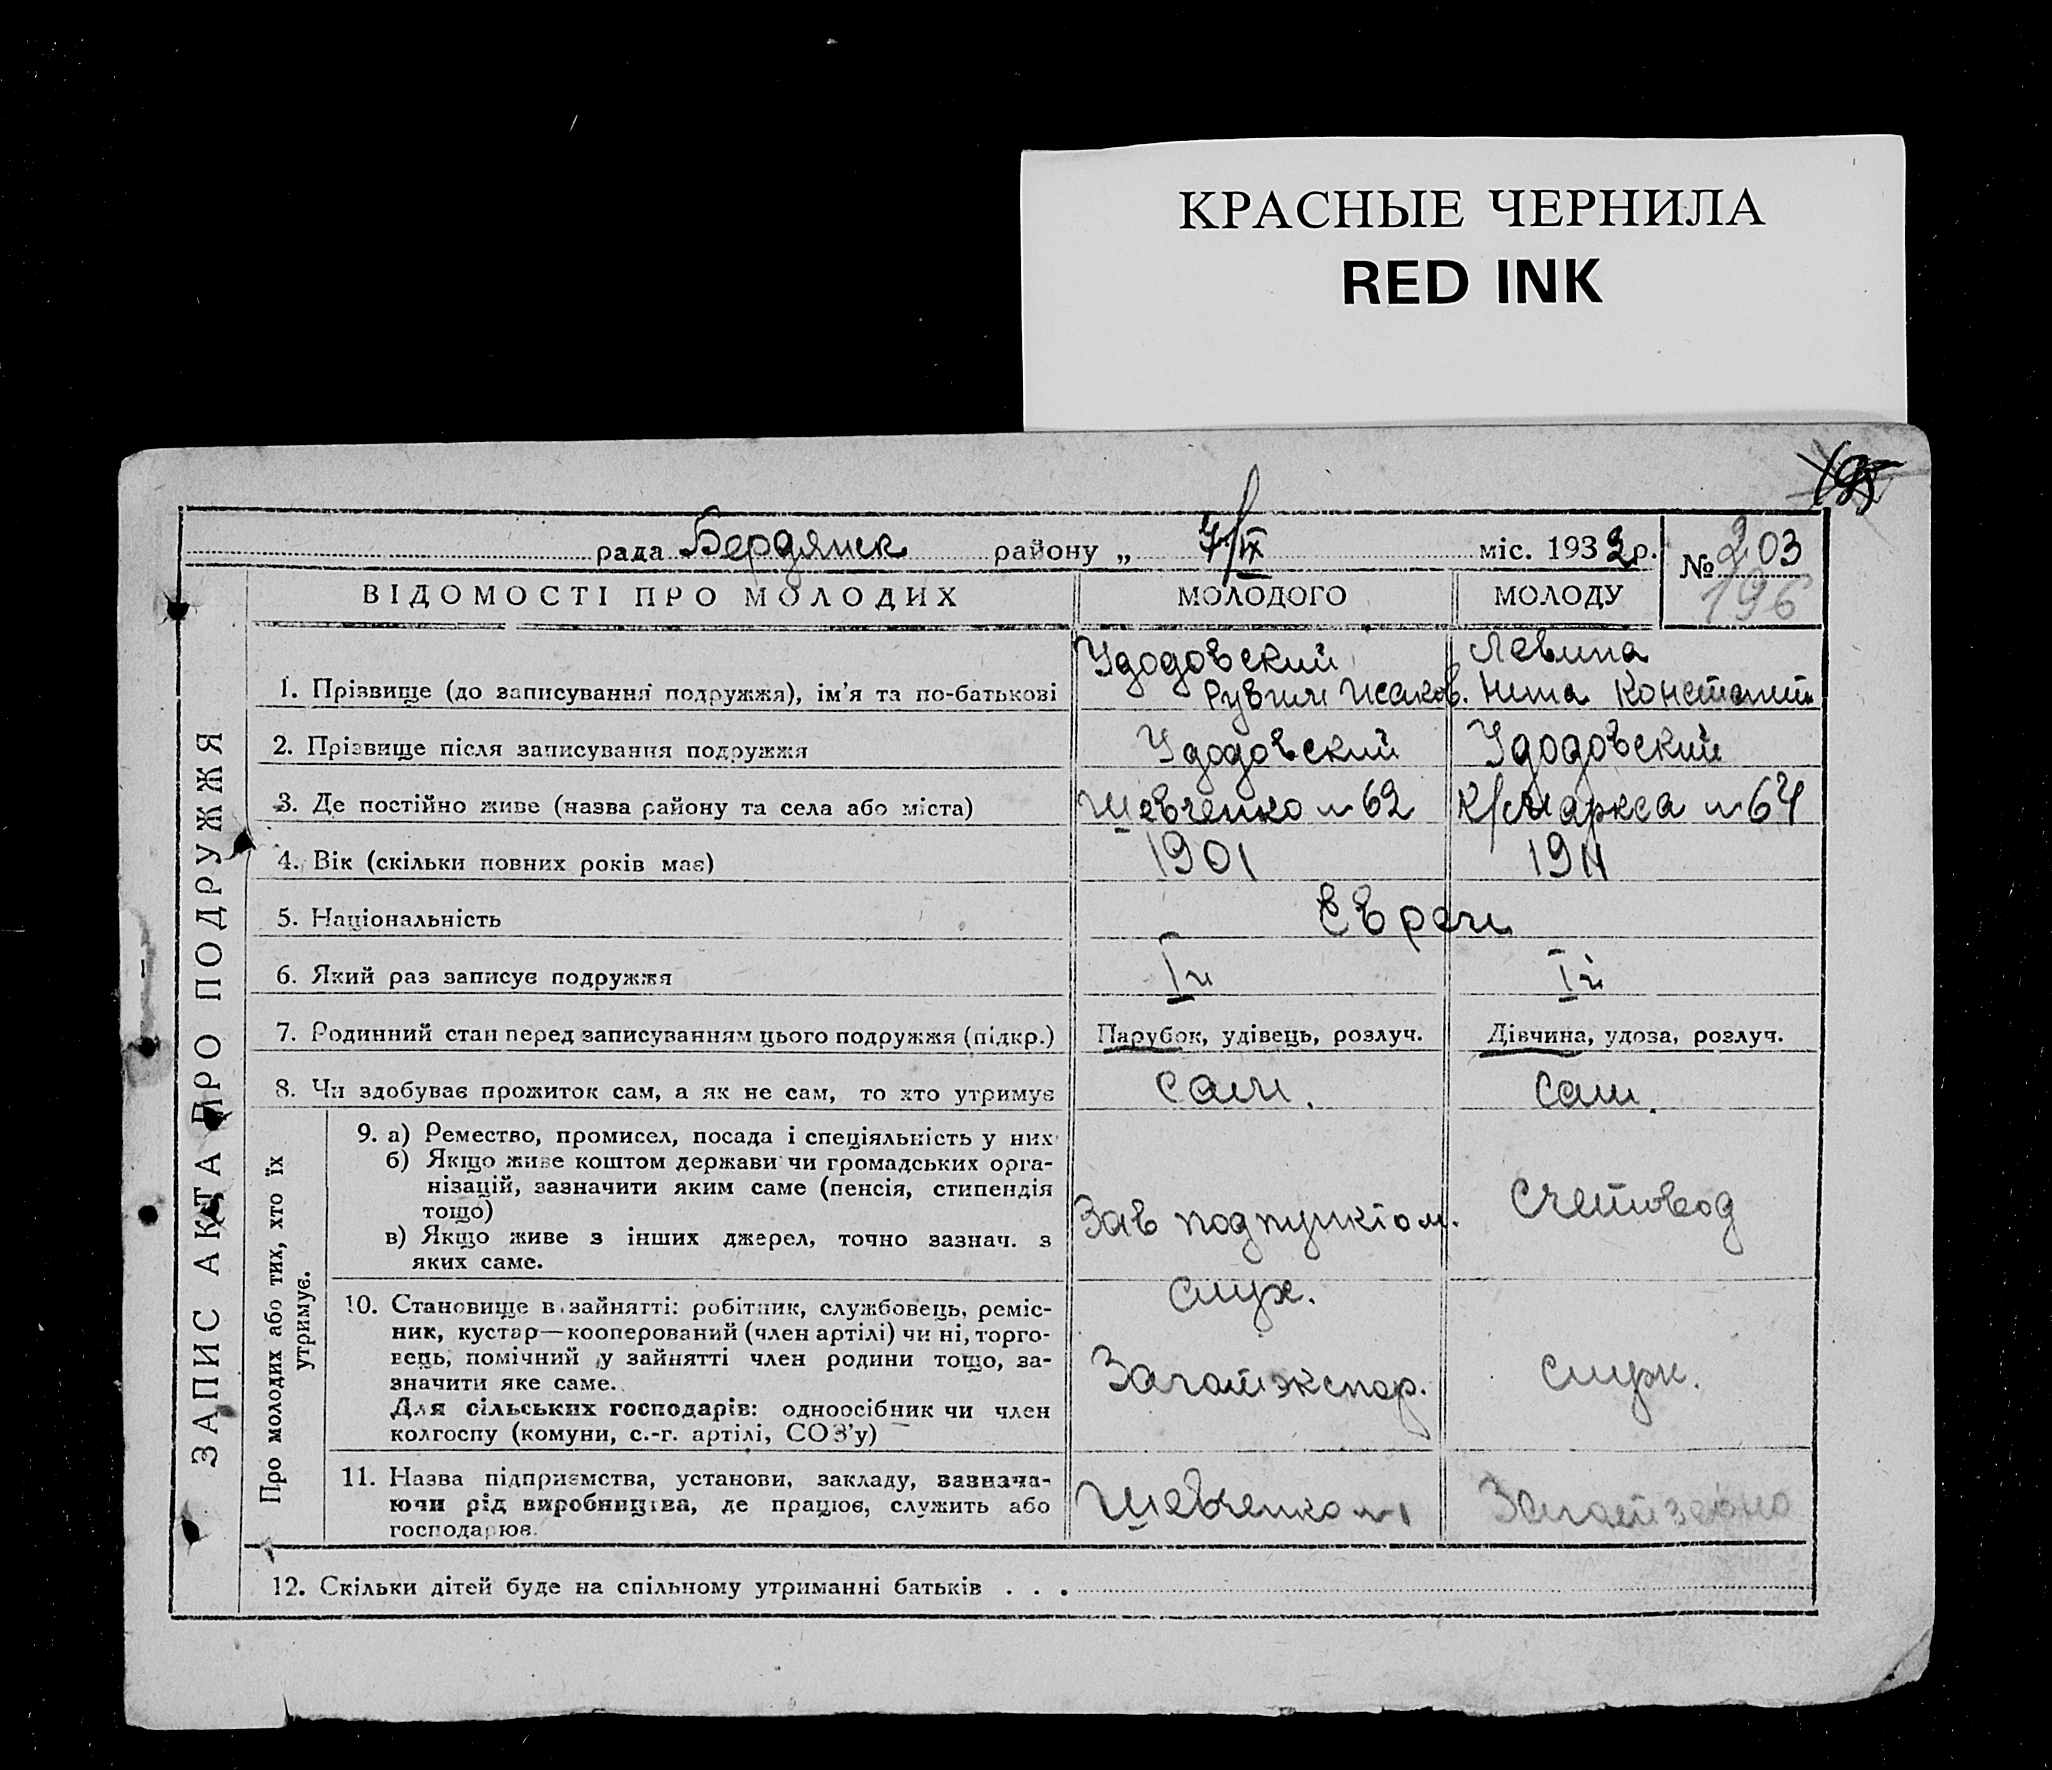 КРАСНЫЕ ЧЕРНИЛА
RED INK
рада Бердянск району „ 7/IX міс. 1932 р. № 203
196
ВІДОМОСТІ ПРО МОЛОДИХ МОЛОДОГО МОЛОДУ
ЗАПИС АКТА ПРО ПОДРУЖЖЯ
Удодовский Левина
1. Прізвище (до записування подружжя), ім'я та по-батькові Рувим Исаков. Нина Констант
2. Прізвище після записування подружжя Удодовский Удодовский
3. Де постійно живе (назва району та села або міста) Шевченко № 62 К/Маркса № 64
4. Вік (скільки повних років має) 1901 1911
5. Національність Евреи
6. Який раз записує подружжя Iй Iй
7. Родинний стан перед записуванням цього подружжя (підкр.) Парубок, удівець, розлуч. Дівчина, удова, розлуч.
8. Чи здобуває прожиток сам, а як не сам, то хто утримує сам. сам.
Про молодих або тих, хто їх
утримує.
9. а) Ремество, промисел, посада і спеціяльність у них
б) Якщо живе коштом держави чи громадських орга-
нізацій, зазначити яким саме (пенсія, стипендія
тощо)
в) Якщо живе з інших джерел, точно зазнач. з
яких саме.
Зав подпунктом. Счетовод
10. Становище в зайнятті: робітник, службовець, реміс-
ник, кустар—кооперований (член артілі) чи ні, торго-
вець, помічний у зайнятті член родини тощо, за-
значити яке саме.
Для сільських господарів: одноосібник чи член
колгоспу (комуни, с.-г. артілі, СОЗ'у)
служ.
служ.
11. Назва підприємства, установи, закладу, зазнача-
ючи рід виробництва, де працює, служить або
господарює.
Шевченко № 1
12. Скільки дітей буде на спільному утриманні батьків . . .